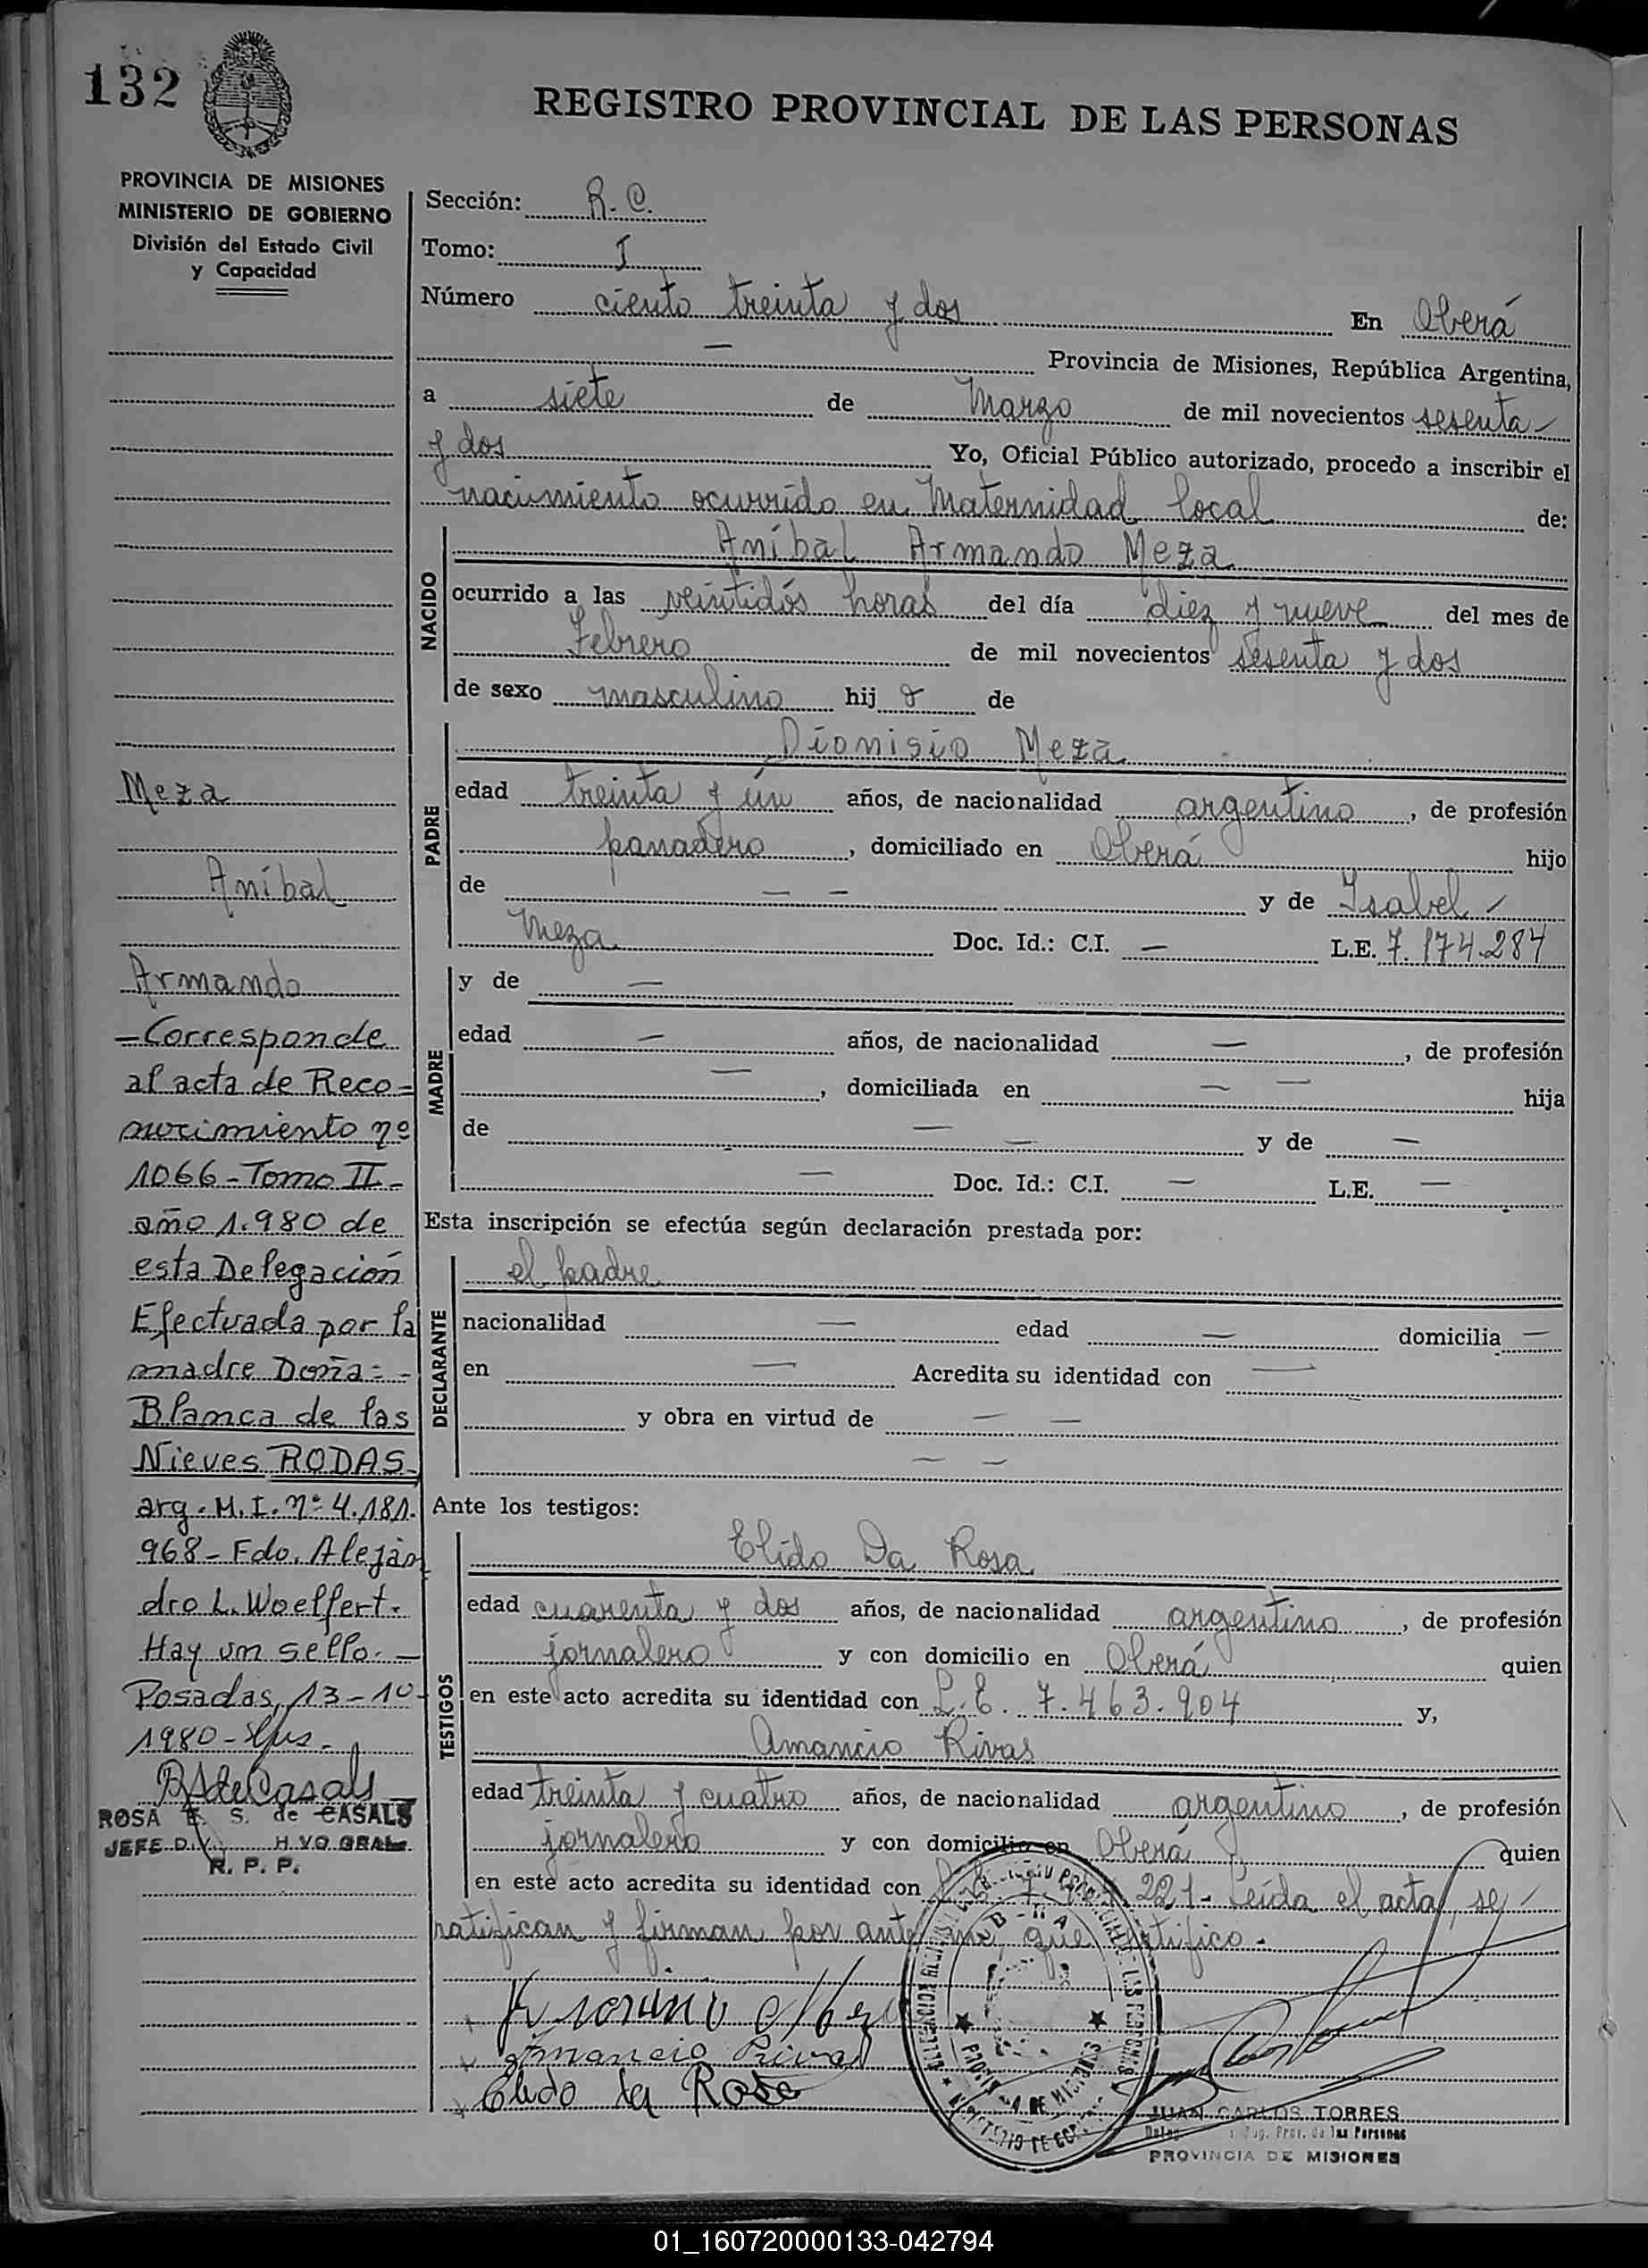 132
REGISTRO PROVINCIAL DE LAS PERSONAS
PROVINCIA DE MISIONES
MINISTERIO DE GOBIERNO
División del Estado Civil
y Capacidad
Meza
Aníbal
Armando
-Corresponde
al acta de Reco=
nocimiento nº
1066-Tomo II-
año 1.980 de
esta Delegación
Efectuada por la
madre Doña=-
Blanca de las
Nieves RODAS-
arg. M.I. nº 4.181.
968- Fdo. Aleján
dro L. Woelfert.
Hay un sello.-
Posadas, 13-10-
1980-
ROSA E. S. de CASALS
JEFE DIV. H VO GRAL
R. P. P.
Sección: R.C.
Tomo: I
Número ciento treinta y dos En Oberá
— Provincia de Misiones, República Argentina,
a siete de Marzo de mil novecientos sesenta-
y dos Yo, Oficial Público autorizado, procedo a inscribir el
nacimiento ocurrido en Maternidad local de:
NACIDO
Aníbal Armando Meza
ocurrido a las veintidós horas del día diez y nueve del mes de
Febrero de mil novecientos sesenta y dos
de sexo masculino hijo de
PADRE
Dionisio Meza
edad treinta y ún años, de nacionalidad argentino, de profesión
panadero, domiciliado en Oberá hijo
de — — y de Isabel-
Meza Doc. Id.: C.I. — L.E. 7.174.284
MADRE
y de —
edad — años, de nacionalidad —, de profesión
—, domiciliada en — — hija
de — — y de —
— Doc. Id.: C.I. — L.E. —
Esta inscripción se efectúa según declaración prestada por:
DECLARANTE
el padre
nacionalidad — edad — domicilia —
en — Acredita su identidad con —
y obra en virtud de — —
— —
Ante los testigos:
TESTIGOS
Elido Da Rosa
edad cuarenta y dos años, de nacionalidad argentino, de profesión
jornalero y con domicilio en Oberá quien
en este acto acredita su identidad con L.E. 7.463.904 y,
Amancio Rivas
edad treinta y cuatro años, de nacionalidad argentino, de profesión
jornalero y con domicilio en Oberá quien
en este acto acredita su identidad con 221- Leída el acta, se-
ratifican y firman por ante mí, que certifico.-
Amancio Rivas
Elido da Rosa
JUAN CARLOS TORRES
Prov. de las Personas
PROVINCIA DE MISIONES
01_160720000133-042794